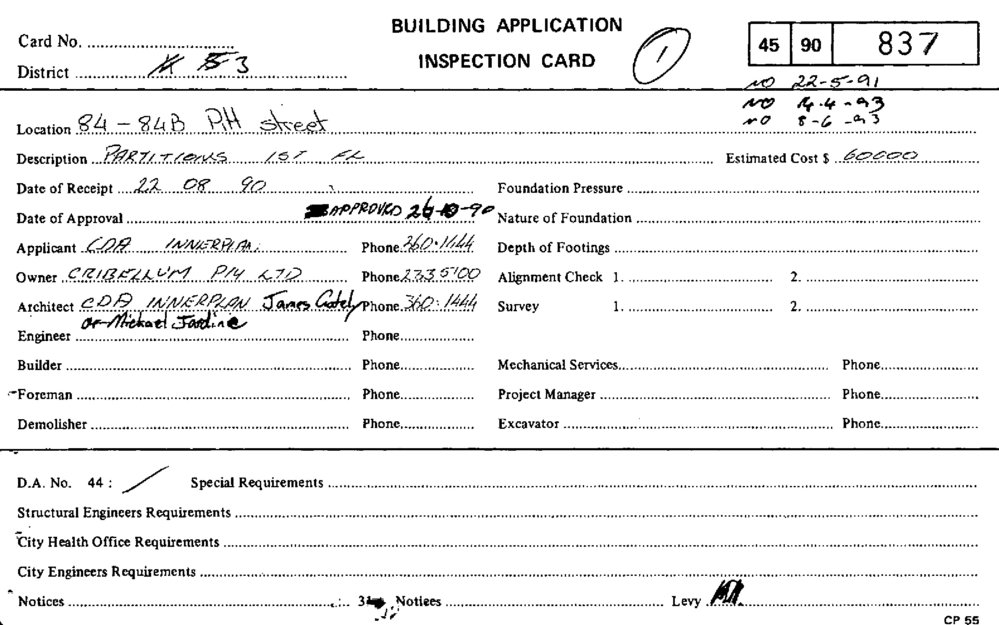 BUILDING APPLICATION
INSPECTION CARD
1
45 90 837
Card No.
District 3
NO 22-5-91
NO 14-4-93
NO 8-6-93
Location 84-84B Pitt street
Description PARTITIONS 1ST FL Estimated Cost $ 60000
Date of Receipt 22 08 90 Foundation Pressure
Date of Approval APPROVED 26-10-90 Nature of Foundation
Applicant CDA INNERPLAN. Phone 360.1444 Depth of Footings
Owner CRIBELLUM P/L LTD Phone 2335100 Alignment Check 1. 2.
Architect CDA INNERPLAN James Gately Phone 360.1444 Survey 1. 2.
or Michael Jardine
Engineer Phone
Builder Phone Mechanical Services Phone
Foreman Phone Project Manager Phone
Demolisher Phone Excavator Phone
D.A. No. 44 : / Special Requirements
Structural Engineers Requirements
City Health Office Requirements
City Engineers Requirements
Notices Notices Levy
CP 55